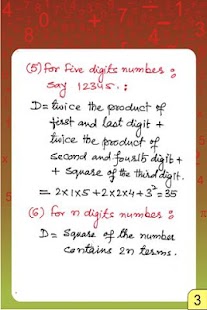 (5) for five digits numbers :
say 12345. :
D = twice the product of
first and last digit +
twice the product of
second and fourth digit +
+ square of the third digit.
= 2×1×5 + 2×2×4 + 3² = 35
(6) for n digits numbers :
D = square of the number
contains 2n terms.
3